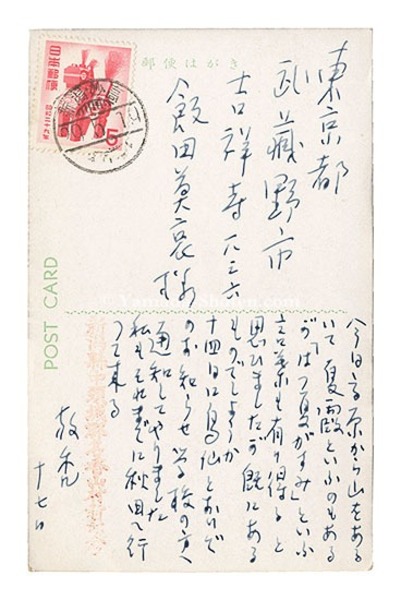 郵便はがき
東京都
武蔵野市
吉祥寺一八三六
飯田莫哀様
日本郵便
5
POST CARD
© Yamada Shoten.com
今日高原から山をある
いて夏霞といふのもある
が「つばつ夏がすみ」といふ
言葉も有り得ると
思ひましたが既にある
ものでしようか
十四日に鳥仙とあいで
のお知らせ 学校の方へ
通知してやりました
私もそれまでに秋田へ行
つて来る
敬吉
十七日